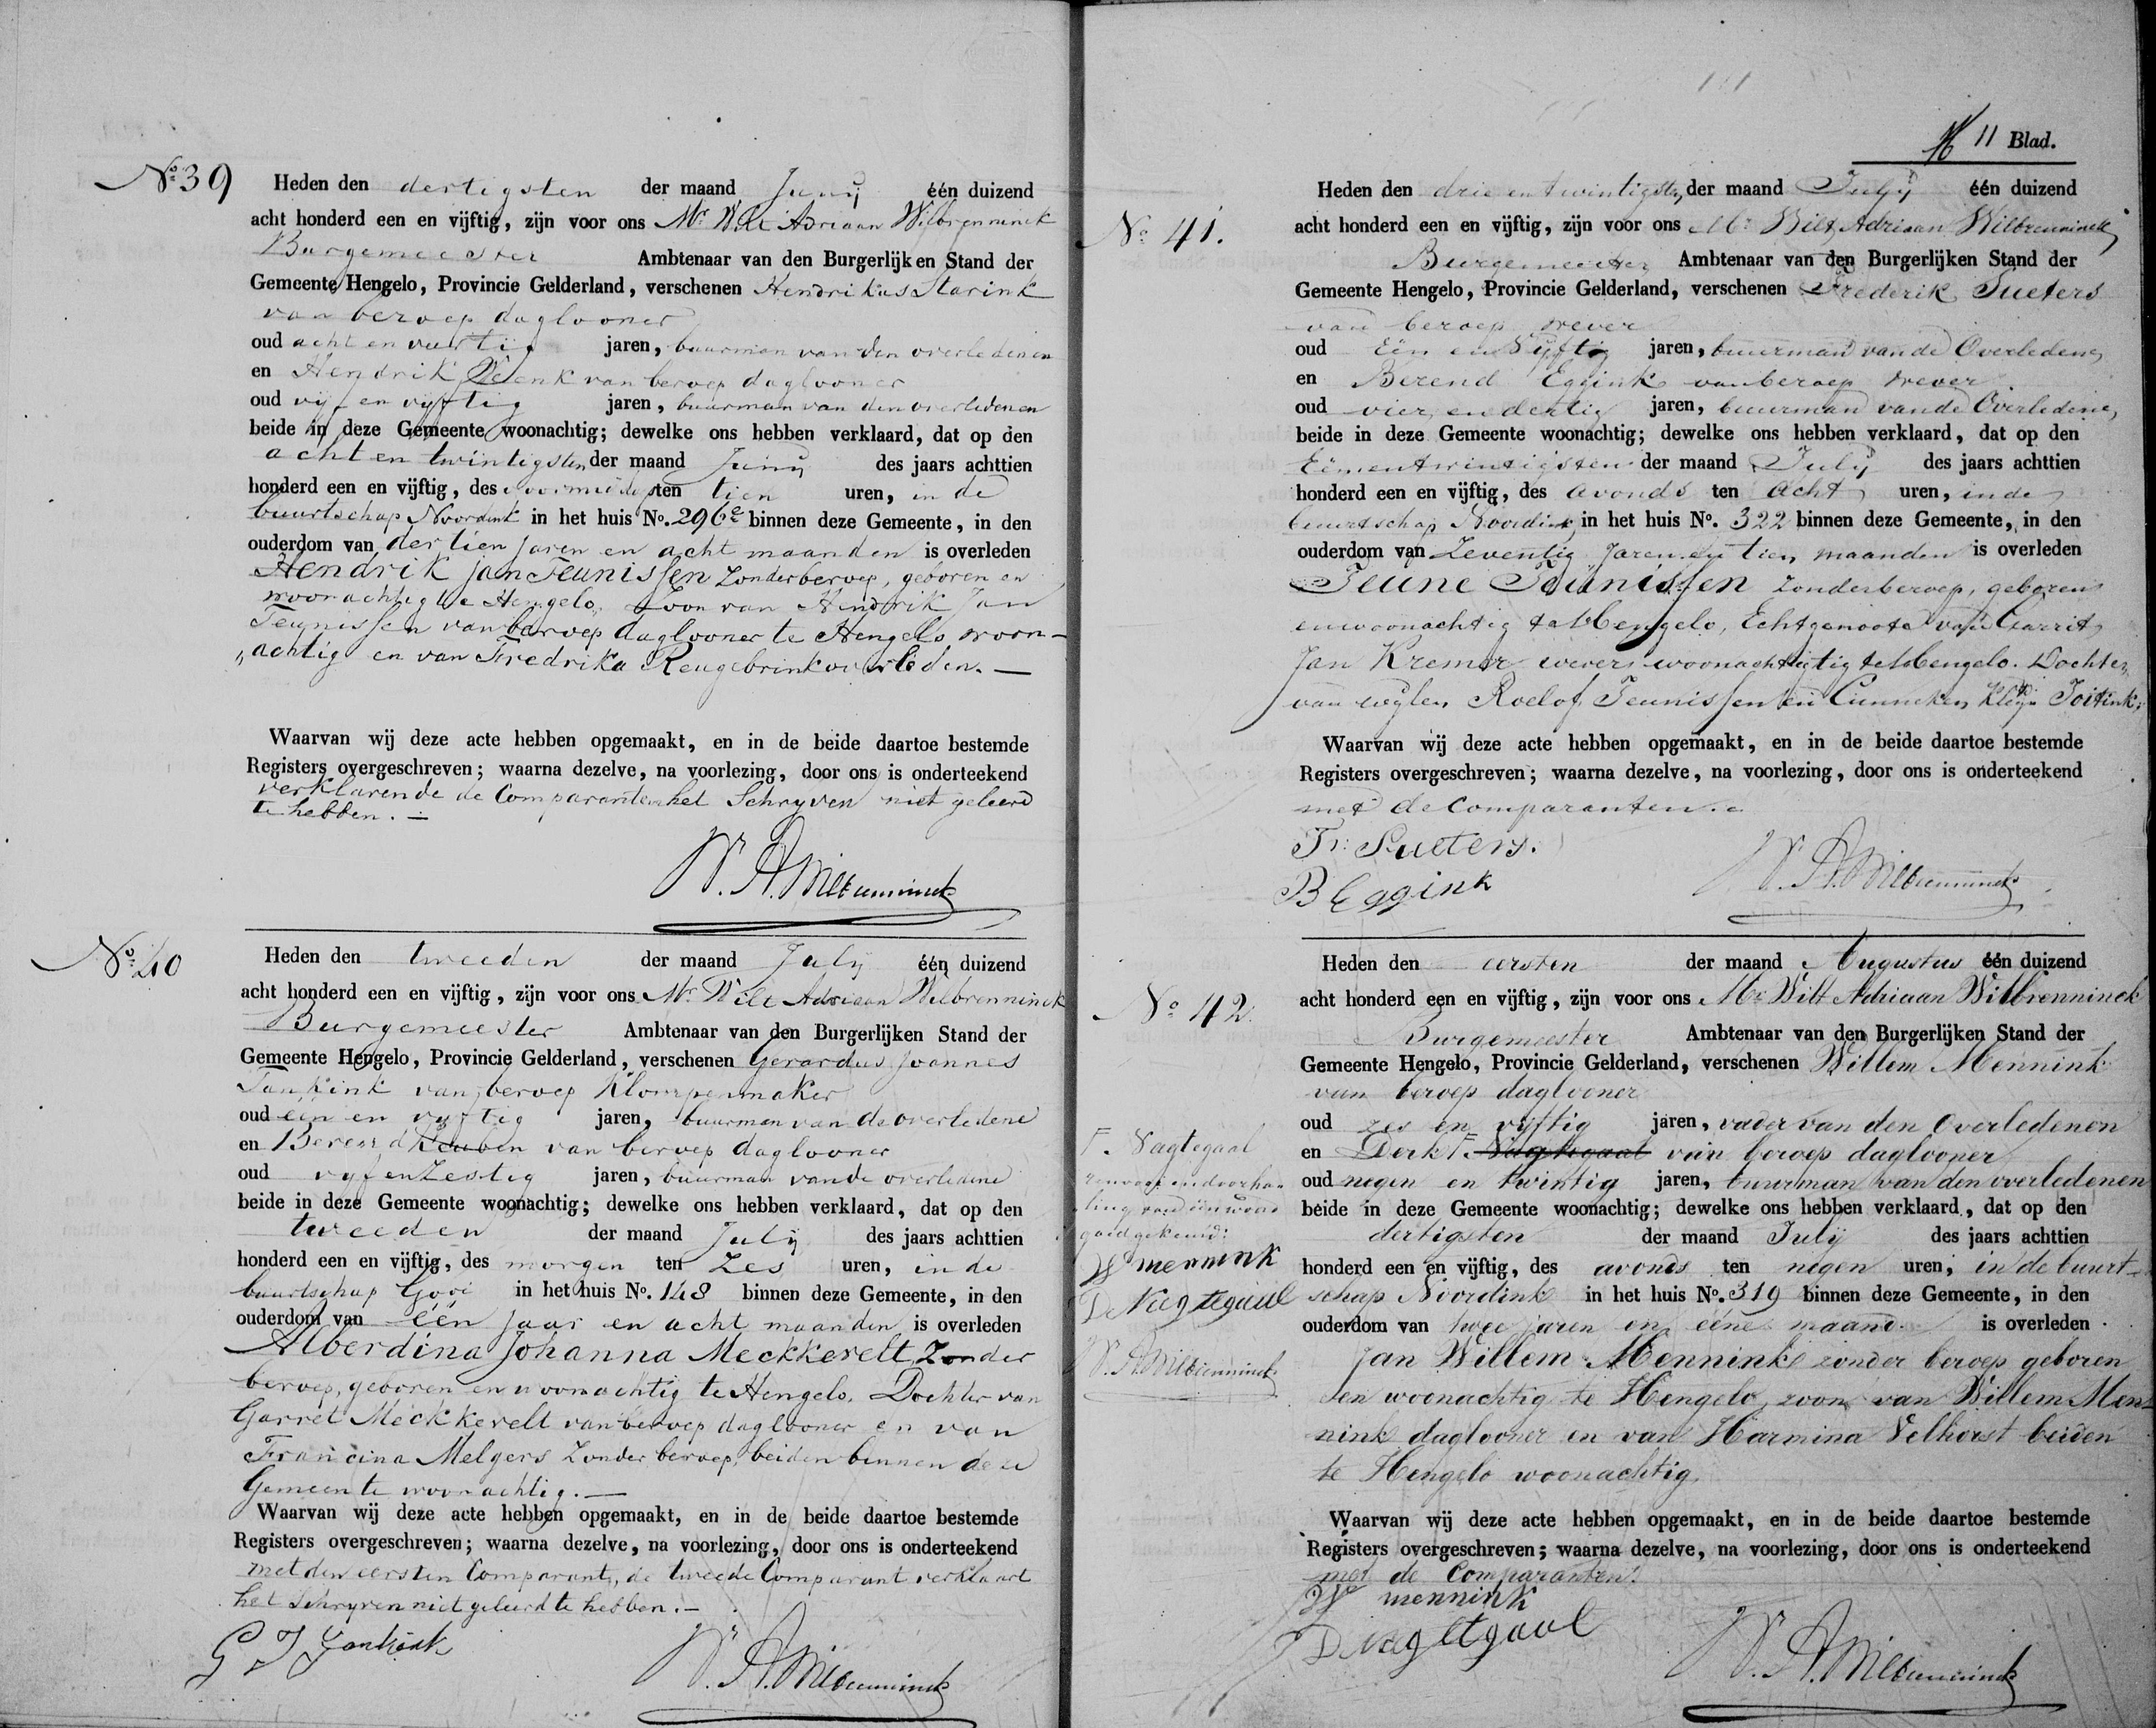 No. 39
Heden den dertigsten der maand Junij één duizend
acht honderd een en vijftig, zijn voor ons Mr. Wilt Adriaan Wilbrenninck
Burgemeester Ambtenaar van den Burgerlijken Stand der
Gemeente Hengelo, Provincie Gelderland, verschenen Hendrikus Starink
van beroep daglooner
oud acht en veertig jaren, buurman van den overledenen
en Hendrik van beroep daglooner
oud vijf en vijftig jaren, buurman van den overledenen
beide in deze Gemeente woonachtig; dewelke ons hebben verklaard, dat op den
acht en twintigsten der maand Junij des jaars achttien
honderd een en vijftig, des voormiddags ten tien uren, in de
buurtschap Noordink in het huis No. 296e binnen deze Gemeente, in den
ouderdom van dertien jaren en acht maanden is overleden
Hendrik Jan Teunissen zonder beroep, geboren en
woonachtig te Hengelo, Zoon van Hendrik Jan
Teunissen van beroep daglooner te Hengelo woon-
„achtig en van Fredrika Reugebrink overleden. —
Waarvan wij deze acte hebben opgemaakt, en in de beide daartoe bestemde
Registers overgeschreven; waarna dezelve, na voorlezing, door ons is onderteekend
verklarende de Comparanten het Schryven niet geleerd
te hebben. —
W. A. Wilbrenninck
No. 40
Heden den tweeden der maand Julij één duizend
acht honderd een en vijftig, zijn voor ons Mr. Wilt Adriaan Wilbrenninck
Burgemeester Ambtenaar van den Burgerlijken Stand der
Gemeente Hengelo, Provincie Gelderland, verschenen Gerardus Joannes
Jankink van beroep Klompenmaker
oud een en vyftig jaren, buurman van de overledene
en Berend van beroep daglooner
oud vyf en Zestig jaren, buurman van de overledene
beide in deze Gemeente woonachtig; dewelke ons hebben verklaard, dat op den
tweeden der maand Julij des jaars achttien
honderd een en vijftig, des morgen ten Zes uren, in de
buurtschap Gooi in het huis No. 148 binnen deze Gemeente, in den
ouderdom van één jaar en acht maanden is overleden
Alberdina Johanna Meckkerelt, Zonder
beroep, geboren en woonachtig te Hengelo. Dochter van
Garret Meckkerelt van beroep daglooner en van
Francina Melgers Zonder beroep, beiden binnen deze
Gemeente woonachtig. —
Waarvan wij deze acte hebben opgemaakt, en in de beide daartoe bestemde
Registers overgeschreven; waarna dezelve, na voorlezing, door ons is onderteekend
met den eersten Comparant, de tweede Comparant verklaart
het Schryven niet geleerd te hebben. —
G J Jankink
W. A. Wilbrenninck
11 Blad.
No. 41.
Heden den drie en twintigsten der maand Julij één duizend
acht honderd een en vijftig, zijn voor ons Mr. Wilt Adriaan Wilbrenninck
Burgemeester Ambtenaar van den Burgerlijken Stand der
Gemeente Hengelo, Provincie Gelderland, verschenen Frederik Sueters
van beroep wever
oud Eén en Vyftig jaren, buurman van de Overledene
en Berend Eggink van beroep wever
oud vier en dertig jaren, buurman van de Overledene,
beide in deze Gemeente woonachtig; dewelke ons hebben verklaard, dat op den
Eénentwintigsten der maand Julij des jaars achttien
honderd een en vijftig, des avonds ten acht uren, in de
buurtschap Noordink in het huis No. 322 binnen deze Gemeente, in den
ouderdom van Zeventig jaren en tien maanden is overleden
Teune Teunissen zonder beroep, geboren
en woonachtig te Hengelo, Echtgenoote van Garrit
Jan Kremer wever woonachtigtig te Hengelo. Dochter
van wylen Roelof Teunissen en Cunneken Kleyn
Waarvan wij deze acte hebben opgemaakt, en in de beide daartoe bestemde
Registers overgeschreven; waarna dezelve, na voorlezing, door ons is onderteekend
met de comparanten.
Fr: Sueters.
B Eggink
W. A. Wilbrenninck
No. 42.
Heden den eersten der maand Augustus één duizend
acht honderd een en vijftig, zijn voor ons Mr. Wilt Adriaan Wilbrenninck
Burgemeester Ambtenaar van den Burgerlijken Stand der
Gemeente Hengelo, Provincie Gelderland, verschenen Willem Mennink
van beroep daglooner
oud zes en vijftig jaren, vader van den Overledenen
en Derk F. Nagtegaal van beroep daglooner
oud negen en twintig jaren, buurman van den overledenen
beide in deze Gemeente woonachtig; dewelke ons hebben verklaard, dat op den
dertigsten der maand Julij des jaars achttien
honderd een en vijftig, des avonds ten negen uren, in de buurt-
schap Noordink in het huis No. 319 binnen deze Gemeente, in den
ouderdom van twee jaren en eéne maand is overleden
Jan Willem Mennink zonder beroep geboren
en woonachtig te Hengelo, zoon van Willem Men-
nink daglooner en van Harmina Velhorst beiden
te Hengelo woonachtig.
Waarvan wij deze acte hebben opgemaakt, en in de beide daartoe bestemde
Registers overgeschreven; waarna dezelve, na voorlezing, door ons is onderteekend
met de Comparanten.
W mennink
D Nagtegaal
W. A. Wilbrenninck
F. Nagtegaal
renvooi en doorha-
ling van één woord
goedgekeurd:
W mennink
D Nagtegaal
W. A. Wilbrenninck